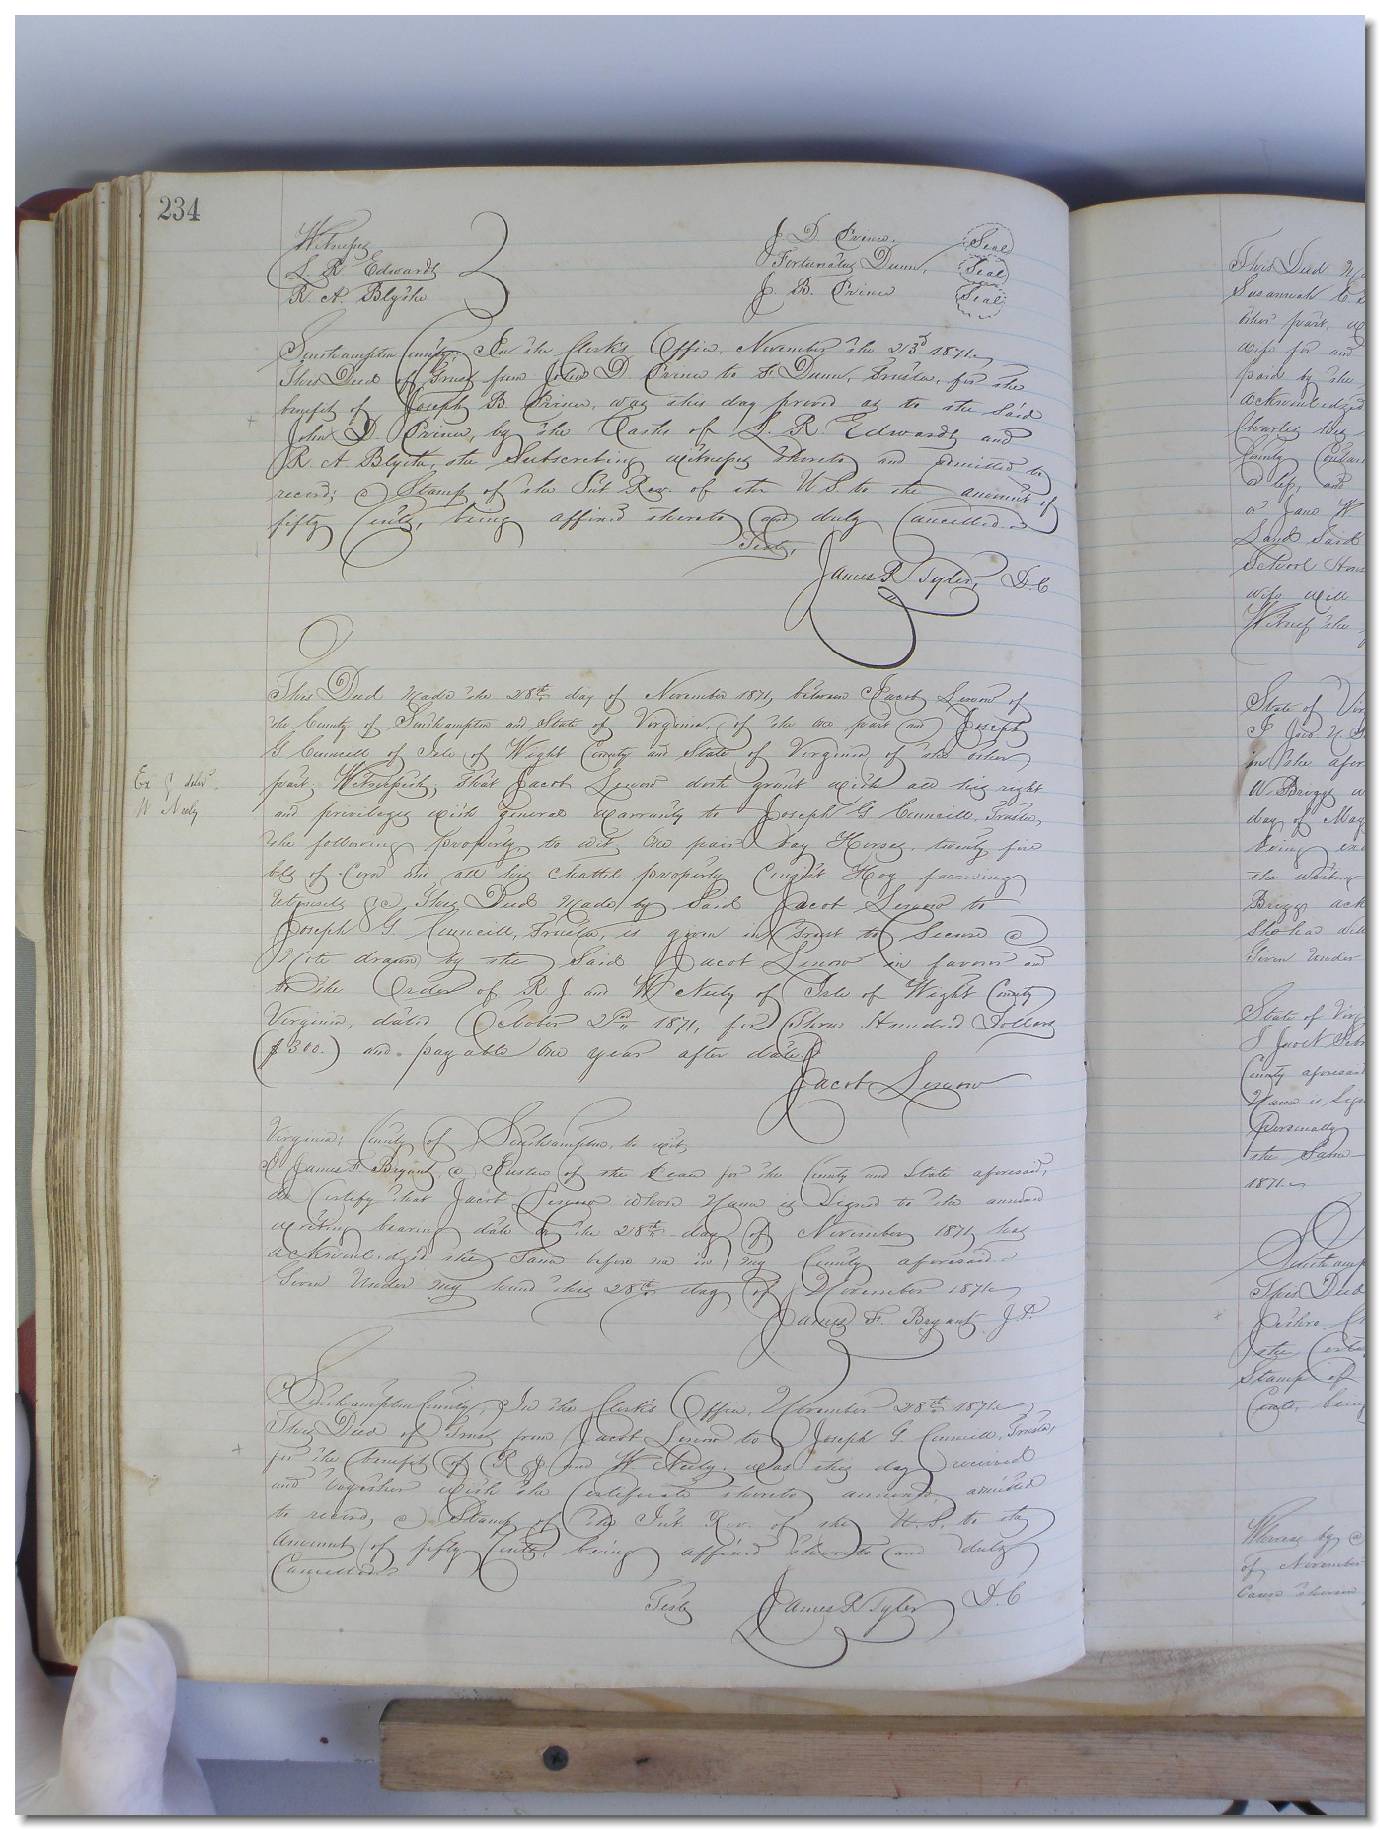 234
Witnesses
L. R. Edwards
R. A. Blythe
J. D. Prince. Seal
Fortunatus Dunn, Seal
J. B. Prince Seal
Southampton County: In the Clerk's Office, November the 23d 1871.
This Deed of Trust from John D. Prince to F. Dunn, Trustee, for the
benefit of Joseph B. Prince, was this day proved as to the said
John D. Prince, by the Oaths of L. R. Edwards and
R. A. Blythe, the Subscribing witnesses thereto and admitted to
record; a Stamp of the Int Rev. of the U. S. to the amount of
fifty Cents, being affixed thereto and duly Cancelled.
Teste,
James R Tyler, D. C
This Deed Made the 28th day of November 1871, between Jacob Lenow of
the County of Southampton and State of Virginia, of the one part and Joseph
G. Councill of Isle of Wight County and State of Virginia of the other
part. Witnesseth; that Jacob Lenow doth grant with all his right
and privileges with general warranty to Joseph G Councill, Trustee,
the following property, to wit, One pair bay Horses, twenty five
bbls of Corn and all his chattel property Hog farming
Utensils &c, This Deed Made by Said Jacob Lenow to
Joseph G. Councill, Trustee, is given in Trust to Secure a
Note drawn by the Said Jacob Lenow in favour and
to the Order of R J and W Neely of Isle of Wight County
Virginia, dated October 2nd 1871, for Three Hundred Dollars
($300.) and payable One year after date
Jacob Lenow
Ex & deld
W Neely
Virginia; County of Southampton, to wit,
I James F. Bryant, a Justice of the Peace for the County and State aforesaid,
do Certify that Jacob Lenow whose Name is Signed to the annexed
writing bearing date on the 28th day of November 1871, has
acknowledged the Same before me in my County aforesaid.
Given Under my hand this 28th day of November 1871.
James F. Bryant J. P.
Southampton County; In the Clerk's Office, November 28th 1871.
This Deed of Trust from Jacob Lenow to Joseph G. Councill, Trustee,
for the benefit of R J and W Neely. was this day received
and together with the Certificate thereto annexed, admitted
to record, a Stamp of the Int. Rev. of the U. S. to the
amount of fifty Cents, being affixed thereto and duly
Cancelled.
Teste
James R Tyler D. C
This Deed
Susannah
other part,
wife for and
paid by the
acknowledged
Charles
County
a
o Jane W
Land Said
School House
wife will
Witness the
State of
I
in the
W. Briggs
day of May
being
the
Briggs
She had
Given Under
State of
I
County aforesaid
Name is
Personally
the Same
1871.
This Deed
the
Stamp of
Cents, being
Whereas by
of November
Cause therein